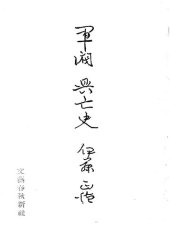 軍閥
興亡史
伊藤正徳
文藝春秋新社